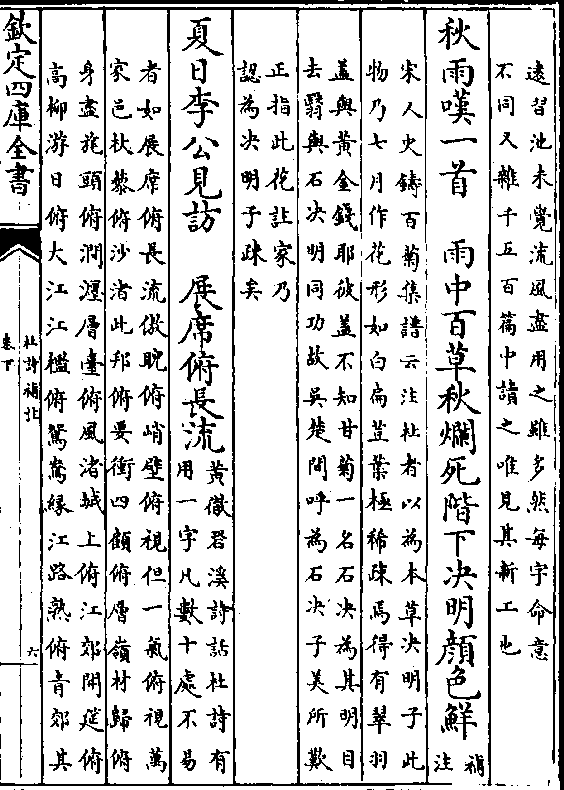 逺習池未覺流風盡用之雖多然每字命意
不同又雜千五百篇中讀之唯見其新工也
秋雨嘆一首　雨中百草秋爛死階下决明顔色鮮補注
宋人史鑄百菊集譜云注杜者以為本草决明子此
物乃七月作花形如白扁荳葉極稀踈焉得有翠羽
葢與黄金錢耶彼葢不知甘菊一名石决為其明目
去翳與石决明同功故吳楚間呼為石决子美所歎
正指此花註家乃
認為决明子踈矣
夏日李公見訪　展席俯長流
黄徹䂬溪詩話杜詩有
用一字凡數十處不易
者如展席俯長流傲睨俯峭壁俯視但一氣俯視萬
家邑杖藜俯沙渚此邦俯要衝四顧俯層嶺材歸俯
身盡旄頭俯澗瀍層臺俯風渚城上俯江郊開筵俯
高柳游日俯大江江檻俯鴛鴦緣江路熟俯青郊其
欽定四庫全書
杜詩補注
卷下
六